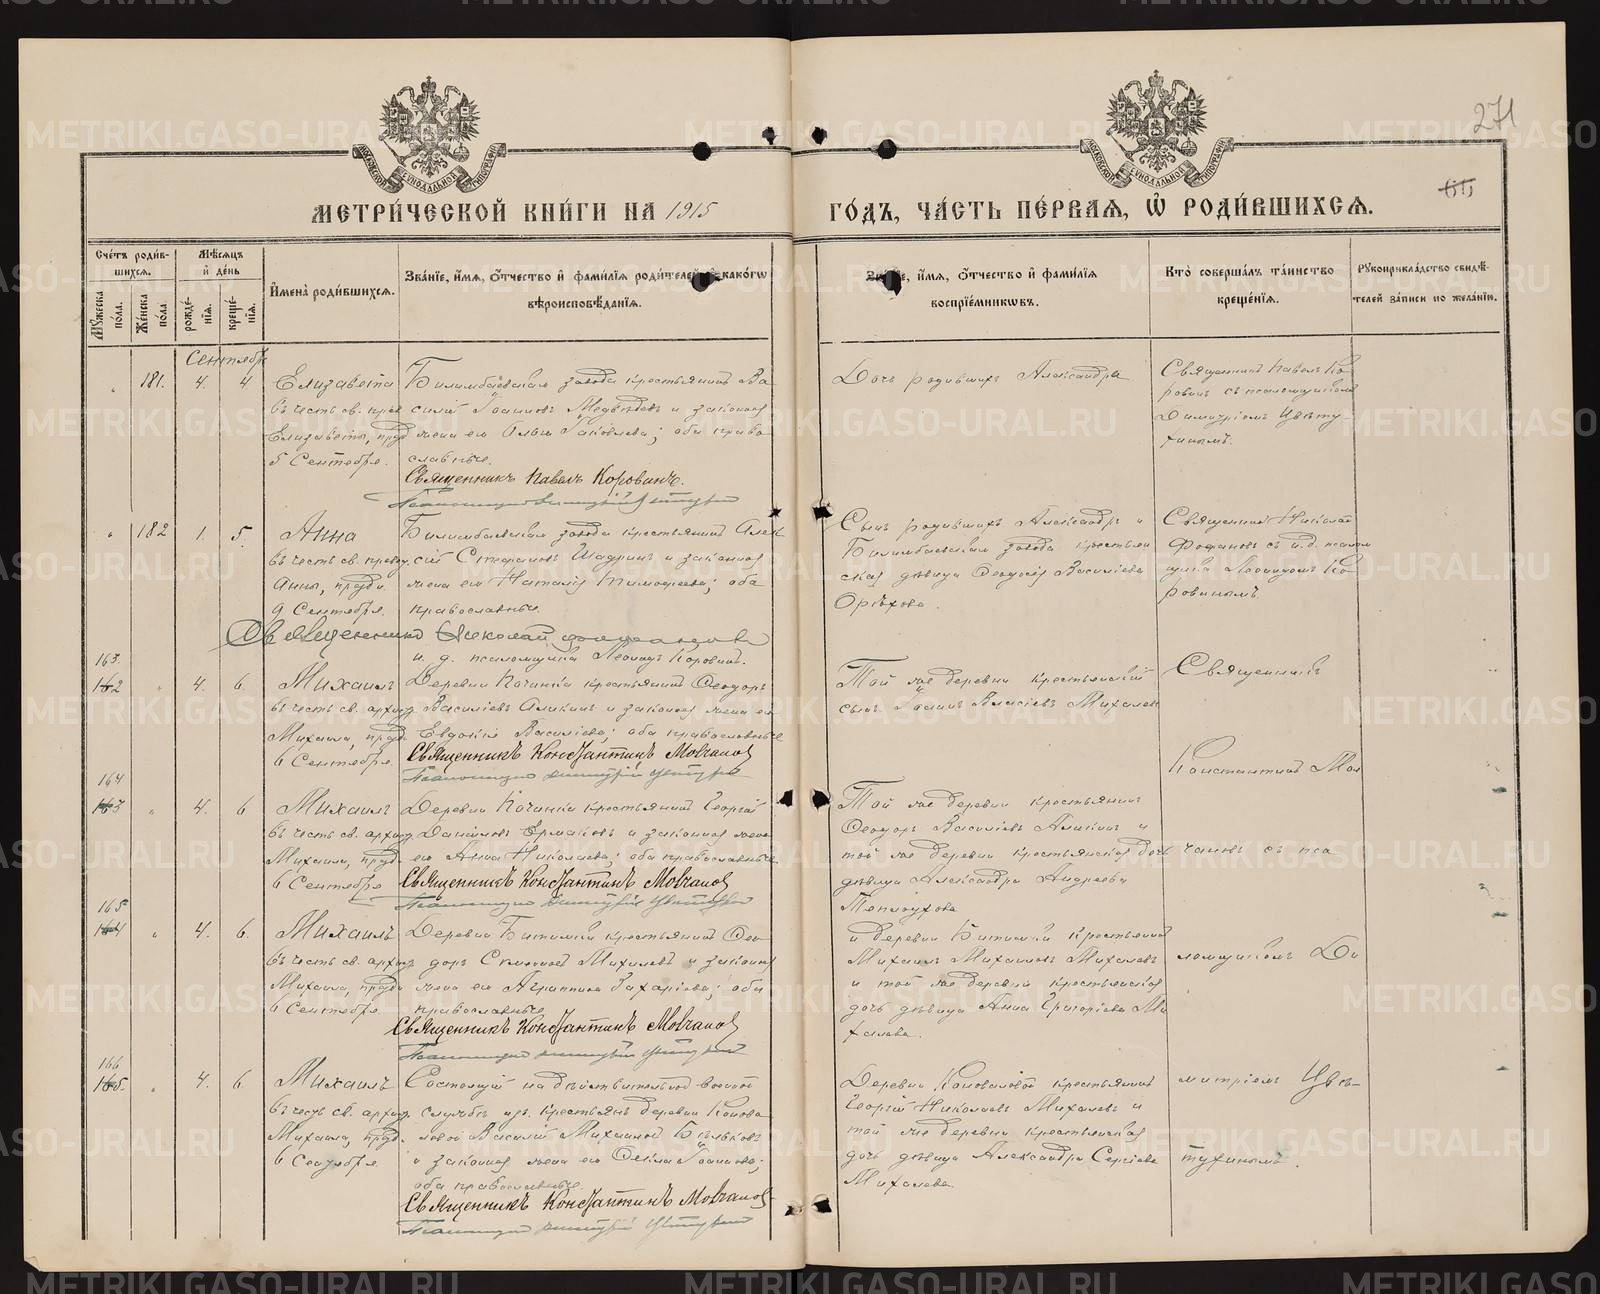 271
МОСКОВСКОЙ СѴНОДАЛЬНОЙ ТИПОГРАФІИ
МОСКОВСКОЙ СѴНОДАЛЬНОЙ ТИПОГРАФІИ
МЕТРИ́ЧЕСКОЙ КНИ́ГИ НА 1915
ГО́ДЪ, ЧА́СТЬ ПЕ́РВАЯ, Ѡ҆ РОДИ́ВШИХСЯ.
Сче́тъ роди́в-
шихся.
Мꙋжеска по́ла.
Же́нска по́ла.
Мѣ́сяцъ
и҆ де́нь
рожде́-
нія.
креще́-
нія.
И҆мена̀ роди́вшихся.
Зва́ніе, и҆́мя, ѻ҆́тчество и҆ фами́лія роди́телей, и҆ како́гѡ
вѣроисповѣ́данія.
Зва́ніе, и҆́мя, ѻ҆́тчество и҆ фами́лія
воспріе́мникѡвъ.
Кто̀ соверша́лъ та́инство
креще́нія.
Рꙋкоприкла́дство свидѣ́-
телей за́писи по жела́нію.
Сентябр
181. 4. 4 Елизавета
въ честь св. прав
Елизаветы, празд
5 Сентября.
Билимбаевскаго завода крестьянинъ Ва
силій Іоанновъ Медведевъ и законная
жена его Ольга Яковлева; оба право
славные.
Священникъ Павелъ Коровинъ.
Дочь родившихъ Александра
Священникъ Павелъ Ко
ровинъ съ псаломщикомъ
Димитріемъ Цвѣту-
хинымъ.
182 1. 5. Анна
въ честь св. правед.
Анны, празд.
9 Сентября.
Билимбаевскаго завода крестьянинъ Алек
сій Стефановъ Шадринъ и законная
жена его Наталія Тимофеева; оба
православные.
Священникъ Николай
и. д. псаломщика Леонидъ Коровинъ.
Сынъ родившихъ Александръ и
Билимбаевскаго завода крестьян
ская дѣвица Ѳеодосія Василіева
Орѣхова.
Священникъ Николай
съ и. д. псалом
щика Леонидомъ Ко
ровинымъ.
163.
162 4. 6. Михаилъ
въ честь св. арханг.
Михаила, празд
6 Сентября.
Деревни Починка крестьянинъ Ѳеодоръ
Василіевъ Аликинъ и законная жена его
Евдокія Василіева; оба православные
Священникъ Константинъ Мовчанов
Той же деревни крестьянскій
сынъ Іоаннъ Власіевъ Михалев
Священникъ
164
163 4. 6 Михаилъ
въ честь св. арханг.
Михаила, празд.
6 Сентября
Деревни Починка крестьянинъ Георгій
Даніиловъ Ермаковъ и законная жена
его Анна Николаева; оба православные
Священникъ Константинъ Мовчанов
Той же деревни крестьянинъ
Ѳеодоръ Василіевъ Аликинъ и
той же деревни крестьянская дочь
дѣвица Александра Андреева
Теплоухова
Константинъ Мов
чановъ съ пса
165
164 4. 6. Михаилъ
въ честь св. арханг
Михаила, празд
6 Сентября
Деревни Битимки крестьянинъ Ѳео
доръ Симеоновъ Михалевъ и законная
жена его Агриппина Захаріева; оба
православные
Священникъ Константинъ Мовчанов
и деревни Битимки крестьянинъ
Михаилъ Михаиловъ Михалевъ
и той же деревни крестьянская
дочь дѣвица Анна Григоріева Ми
халева.
ломщикомъ Ди
166
165. 4. 6. Михаилъ
въ честь св. арханг.
Михаила, празд.
6 Сентября
Состоящій на дѣйствительной военной
службѣ изъ крестьянъ деревни Конова
ловой Василій Михаиловъ Бѣльковъ
и законная жена его Ѳекла Іоаннова;
оба православные.
Священникъ Константинъ Мовчанов
Деревни Коноваловой крестьянинъ
Георгій Николаевъ Михалевъ и
той же деревни крестьянская
дочь дѣвица Александра Сергіева
Михалева.
митріемъ Цвѣ-
тухинымъ.
METRIKI.GASO-URAL.RU